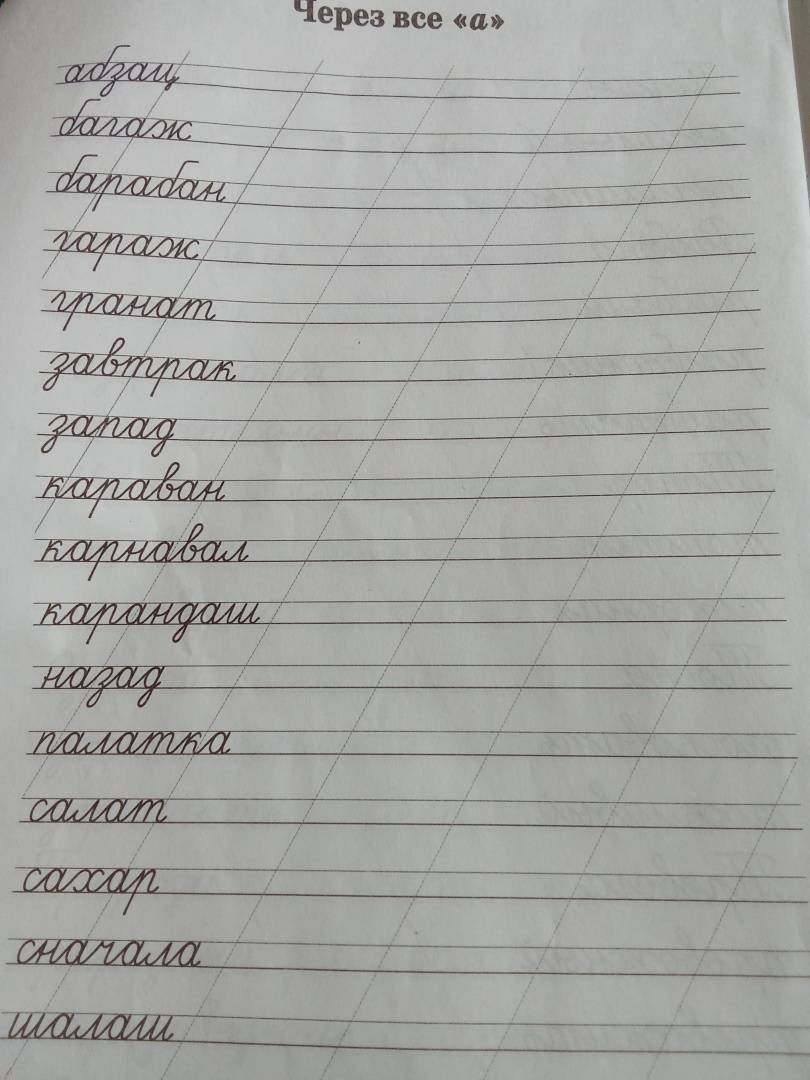 Через все «а»
абзац
багаж
барабан
гараж
гранат
завтрак
запад
караван
карнавал
карандаш
назад
палатка
салат
сахар
сначала
шалаш